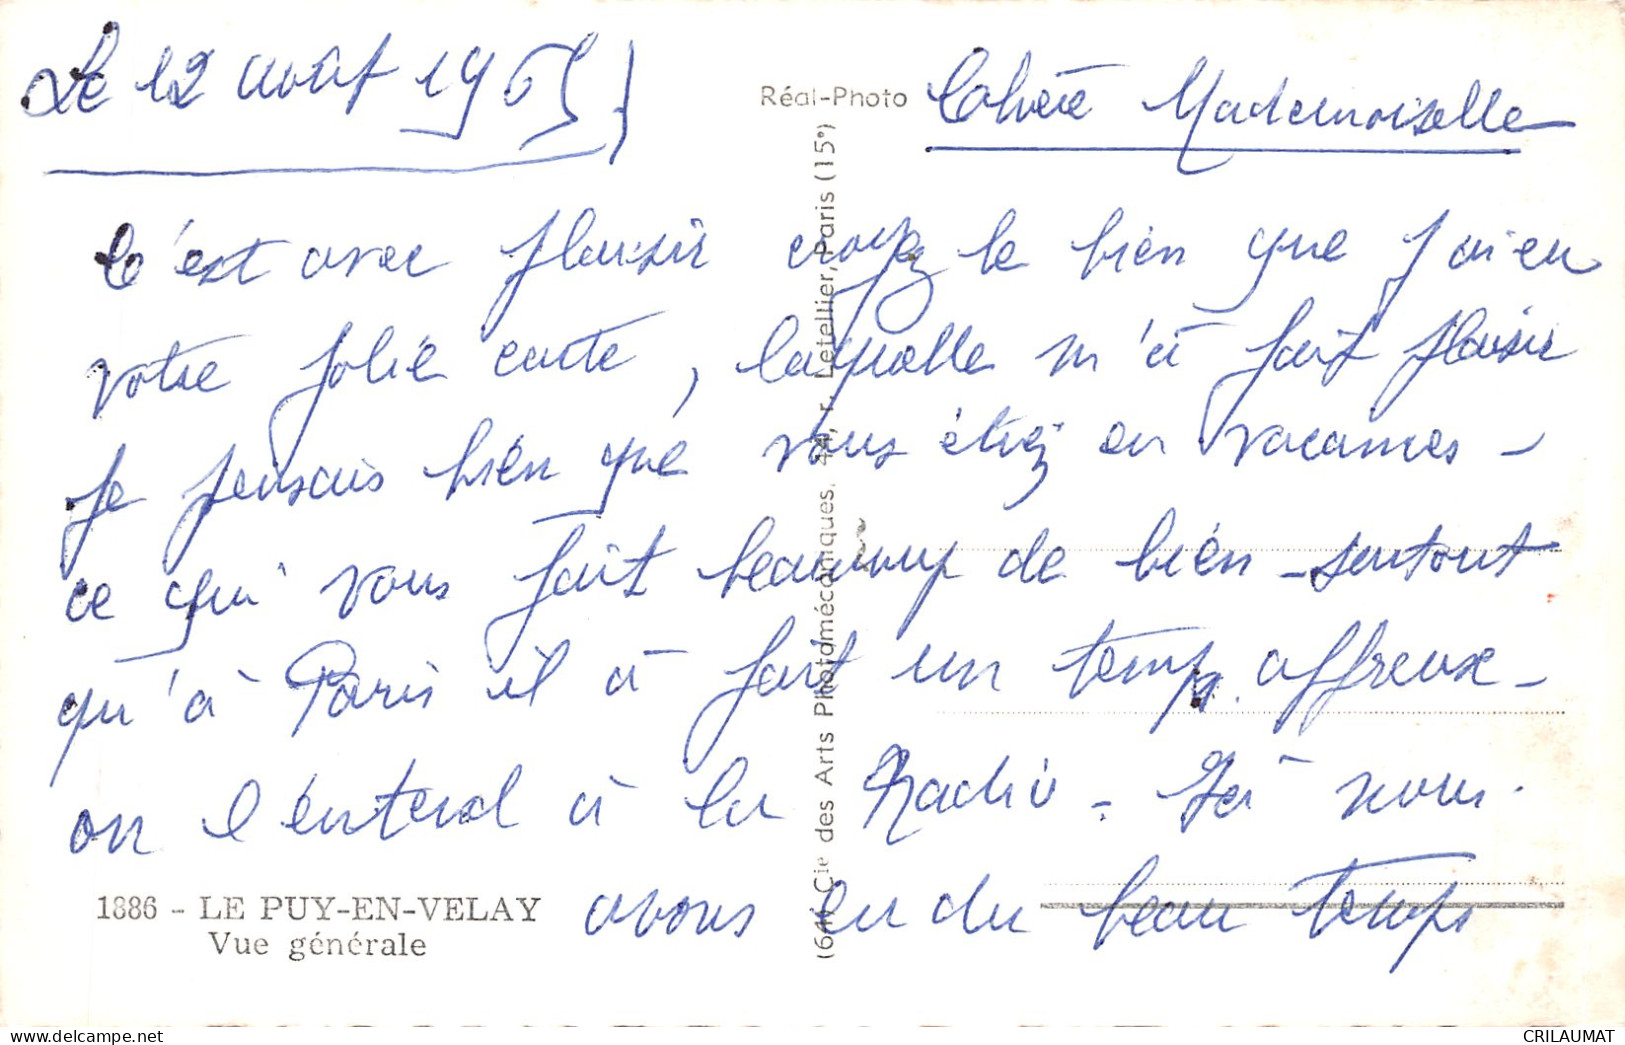 Le 12 août 1965
Réal-Photo
Chère Mademoiselle
C'est avec plaisir croyez le bien que j'ai eu
votre jolie carte, laquelle m'à fait plaisir
je pensais bien que vous étiez en vacances -
ce qui vous fait beaucoup de bien - surtout
qu'à Paris il à fait un temps affreux -
on l'entend à la Radio - Ici nous
avons eu du beau temps
1886 - LE PUY-EN-VELAY
Vue générale
Cie des Arts Photomécaniques, 44, r. Letellier, Paris (15e)
CRILAUMAT